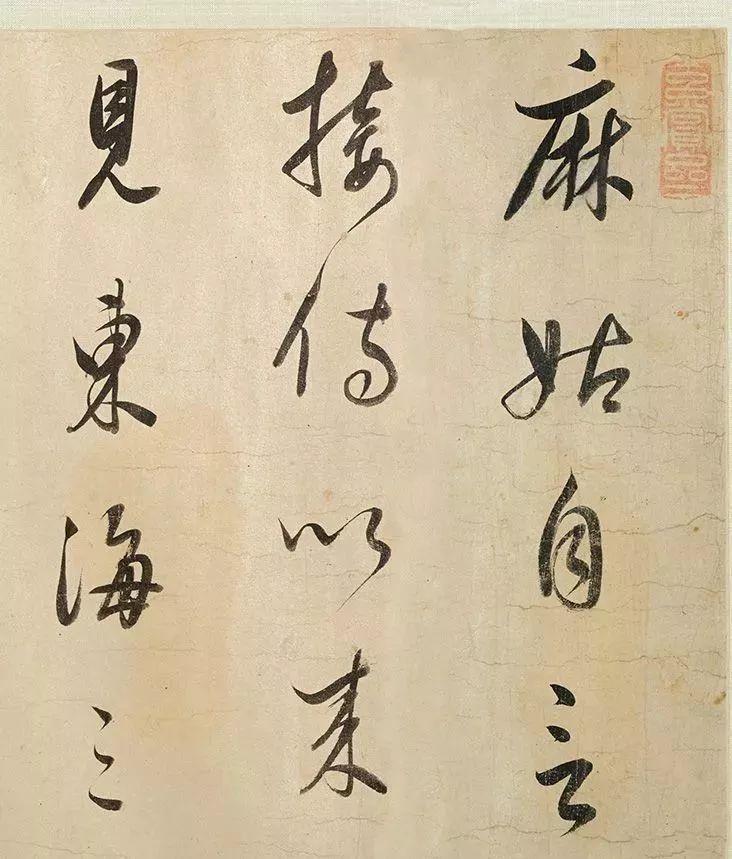 麻姑自言
接侍以来
見東海三